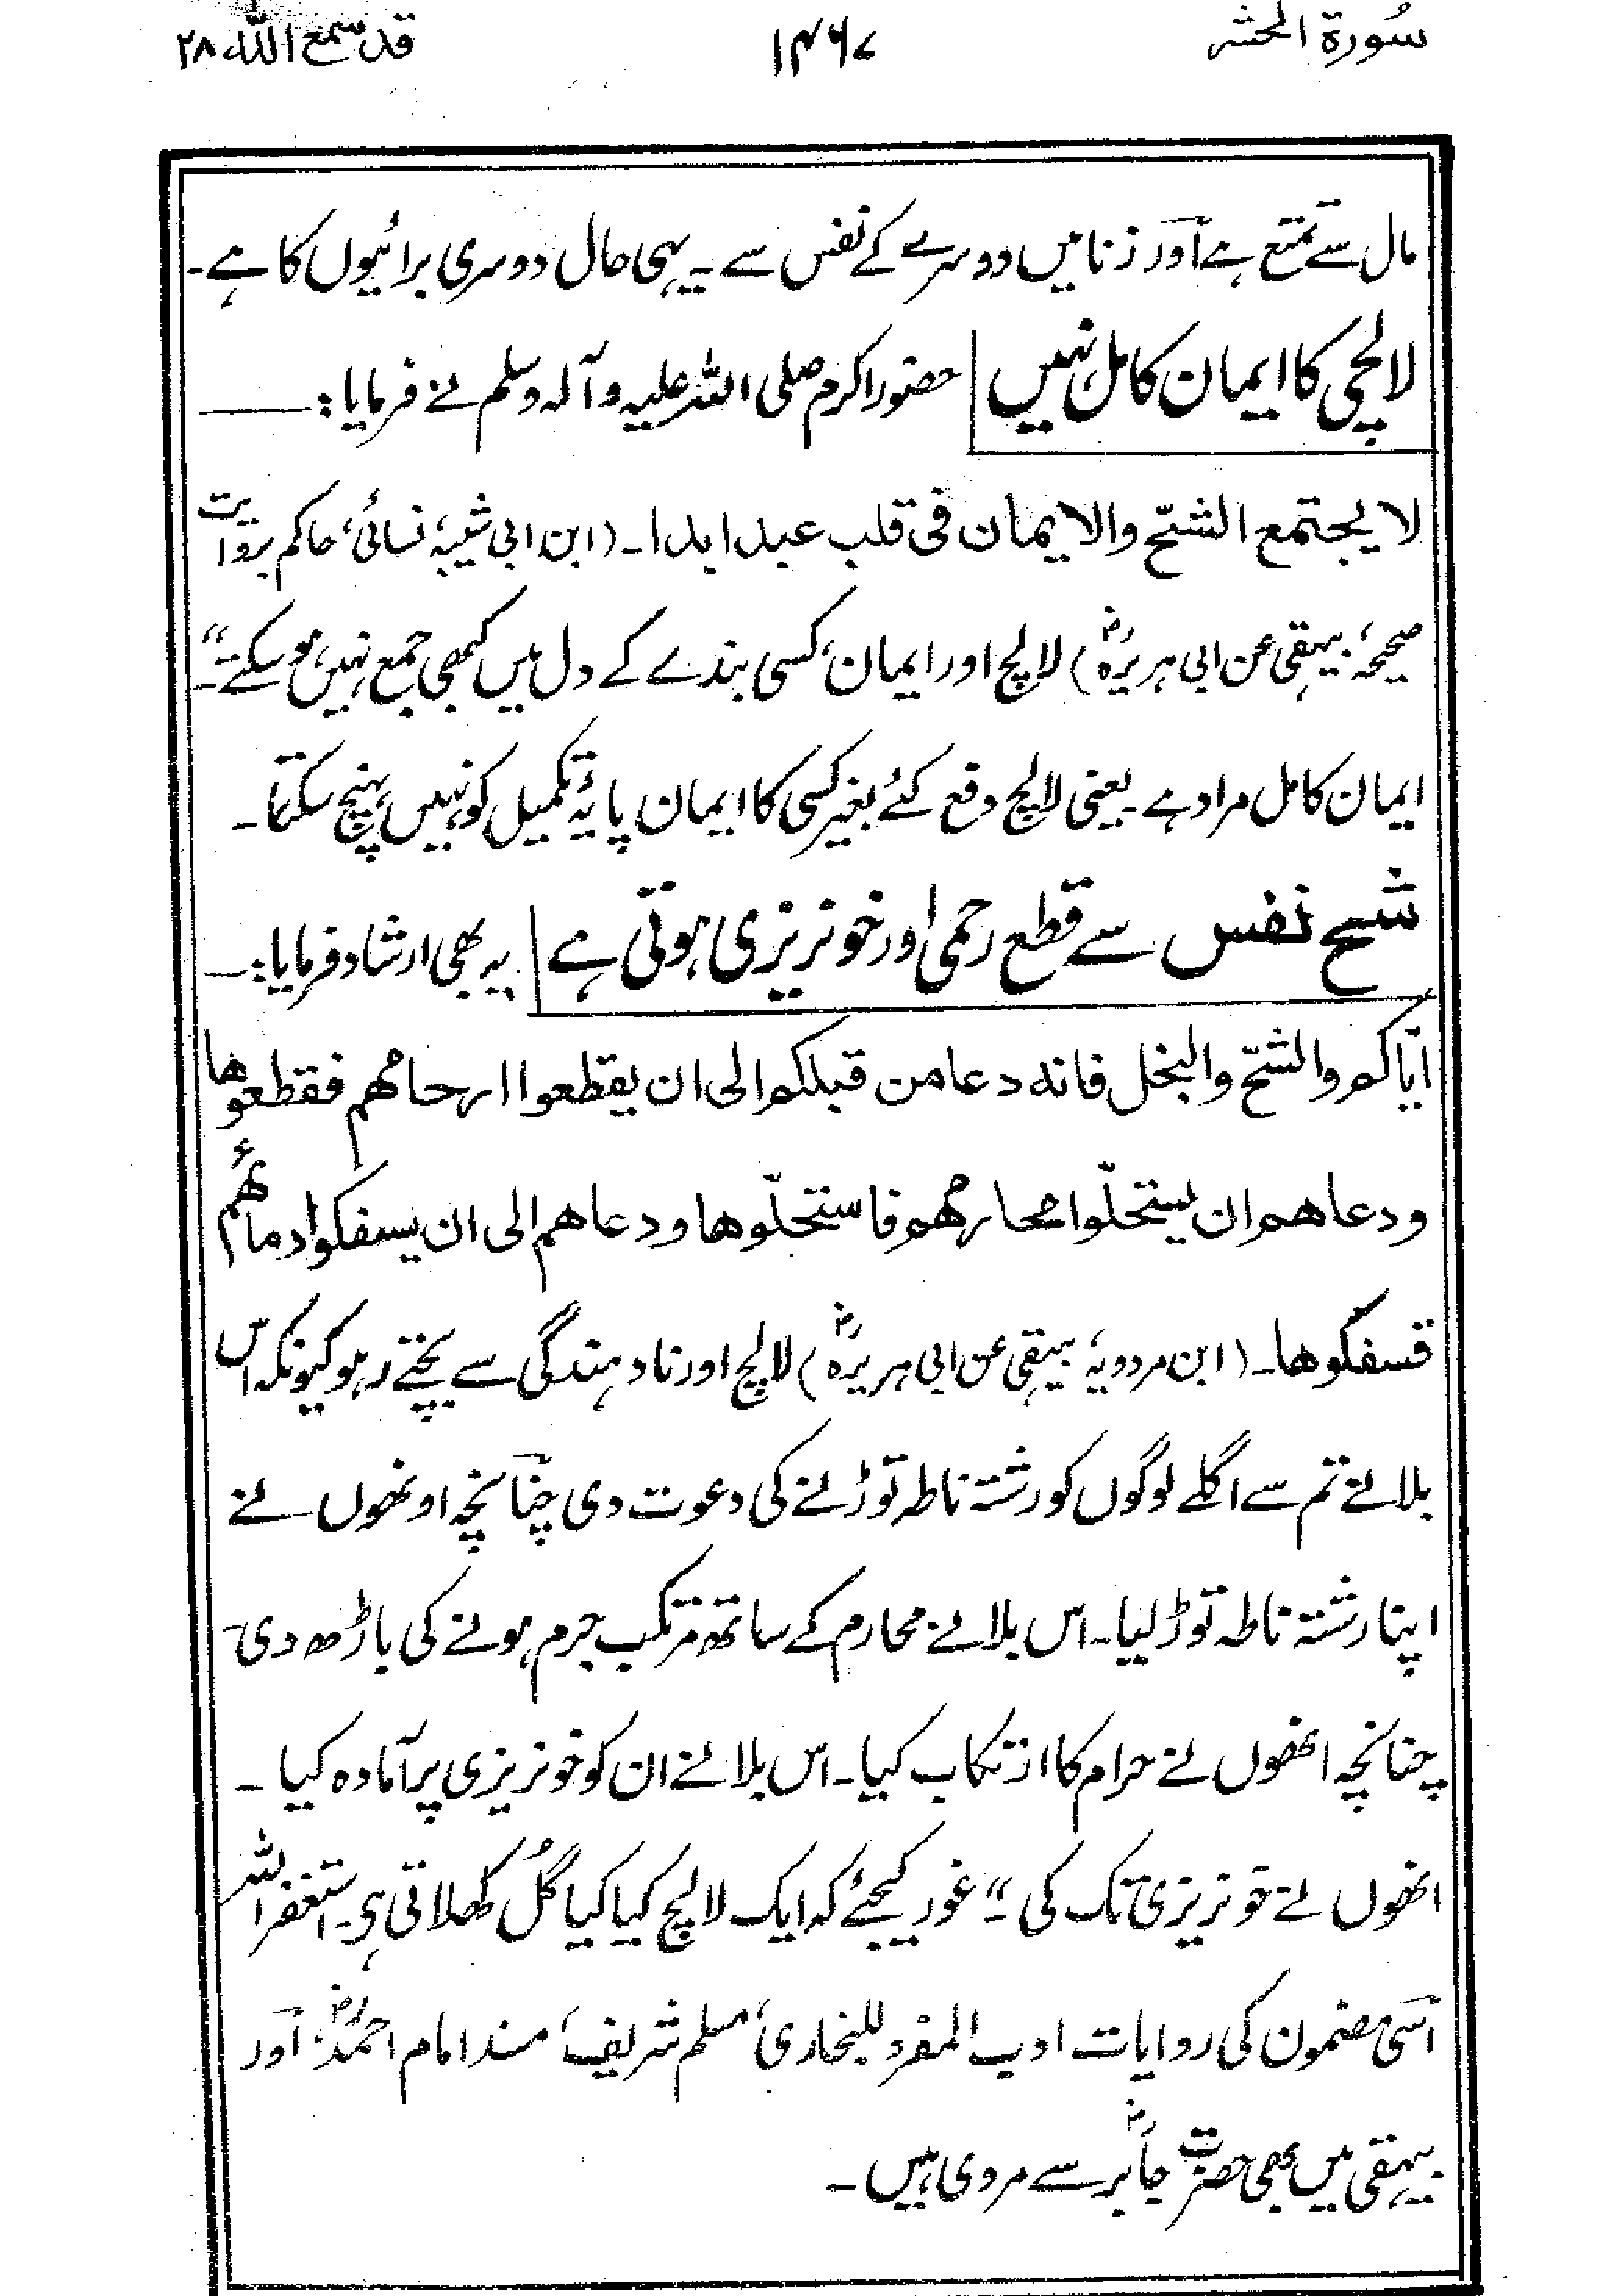 سُورۃ الحشر ۱۴۶۷ قد سمع اللہ ۲۸
مال سے تمتع ہے اور زنا میں دوسرے کے نفس سے ۔ یہی حال دوسری برائیوں کا ہے ۔
لالچی کا ایمان کامل نہیں حضور اکرم صلی اللہ علیہ وآلہ وسلم نے فرمایا :ــــ
لا یجتمع الشحّ والایمان فی قلب عبد ابدا ۔ (ابن ابی شیبہ، نسائی، حاکم بروایت
صحیحہ، بیہقی عن ابی ہریرہؓ) لالچ اور ایمان، کسی بندے کے دل میں کبھی جمع نہیں ہو سکتے ۔“
ایمان کامل مراد ہے ۔ یعنی لالچ دفع کئے بغیر کسی کا ایمان پایۂ تکمیل کو نہیں پہنچ سکتا ۔
شح نفس سے قطع رحمی اور خونریزی ہوتی ہے یہ بھی ارشاد فرمایا :ــــ
ایّاکم والشحّ والبخل فانہ دعا من قبلکم الی ان یقطعوا ارحامھم فقطعوھا
ودعاھم ان یستحلّوا محارمھم فاستحلّوھا ودعاھم الی ان یسفکوا دماءھم
فسفکوھا ۔ (ابن مردویہ، بیہقی عن ابی ہریرہؓ) لالچ اور نادہندگی سے بچتے رہو کیونکہ اس
بلا نے تم سے اگلے لوگوں کو رشتہ ناطہ توڑنے کی دعوت دی چنانچہ اونھوں نے
اپنا رشتہ ناطہ توڑ لیا ۔ اس بلا نے محارم کے ساتھ مرتکب جرم ہونے کی باڑھ دی ۔
چنانچہ انھوں نے حرام کا ارتکاب کیا ۔ اس بلا نے ان کو خونریزی پر آمادہ کیا ۔
انھوں نے خونریزی تک کی ۔“ غور کیجئے کہ ایک لالچ کیا کیا گُل کھلاتی ہی ۔ استغفر اللہ
اسی مضمون کی روایات ادب المفرد للبخاری، مسلم شریف، مسند امام احمدؒ، اور
بیہقی میں بھی حضرت جابرؓ سے مروی ہیں ۔